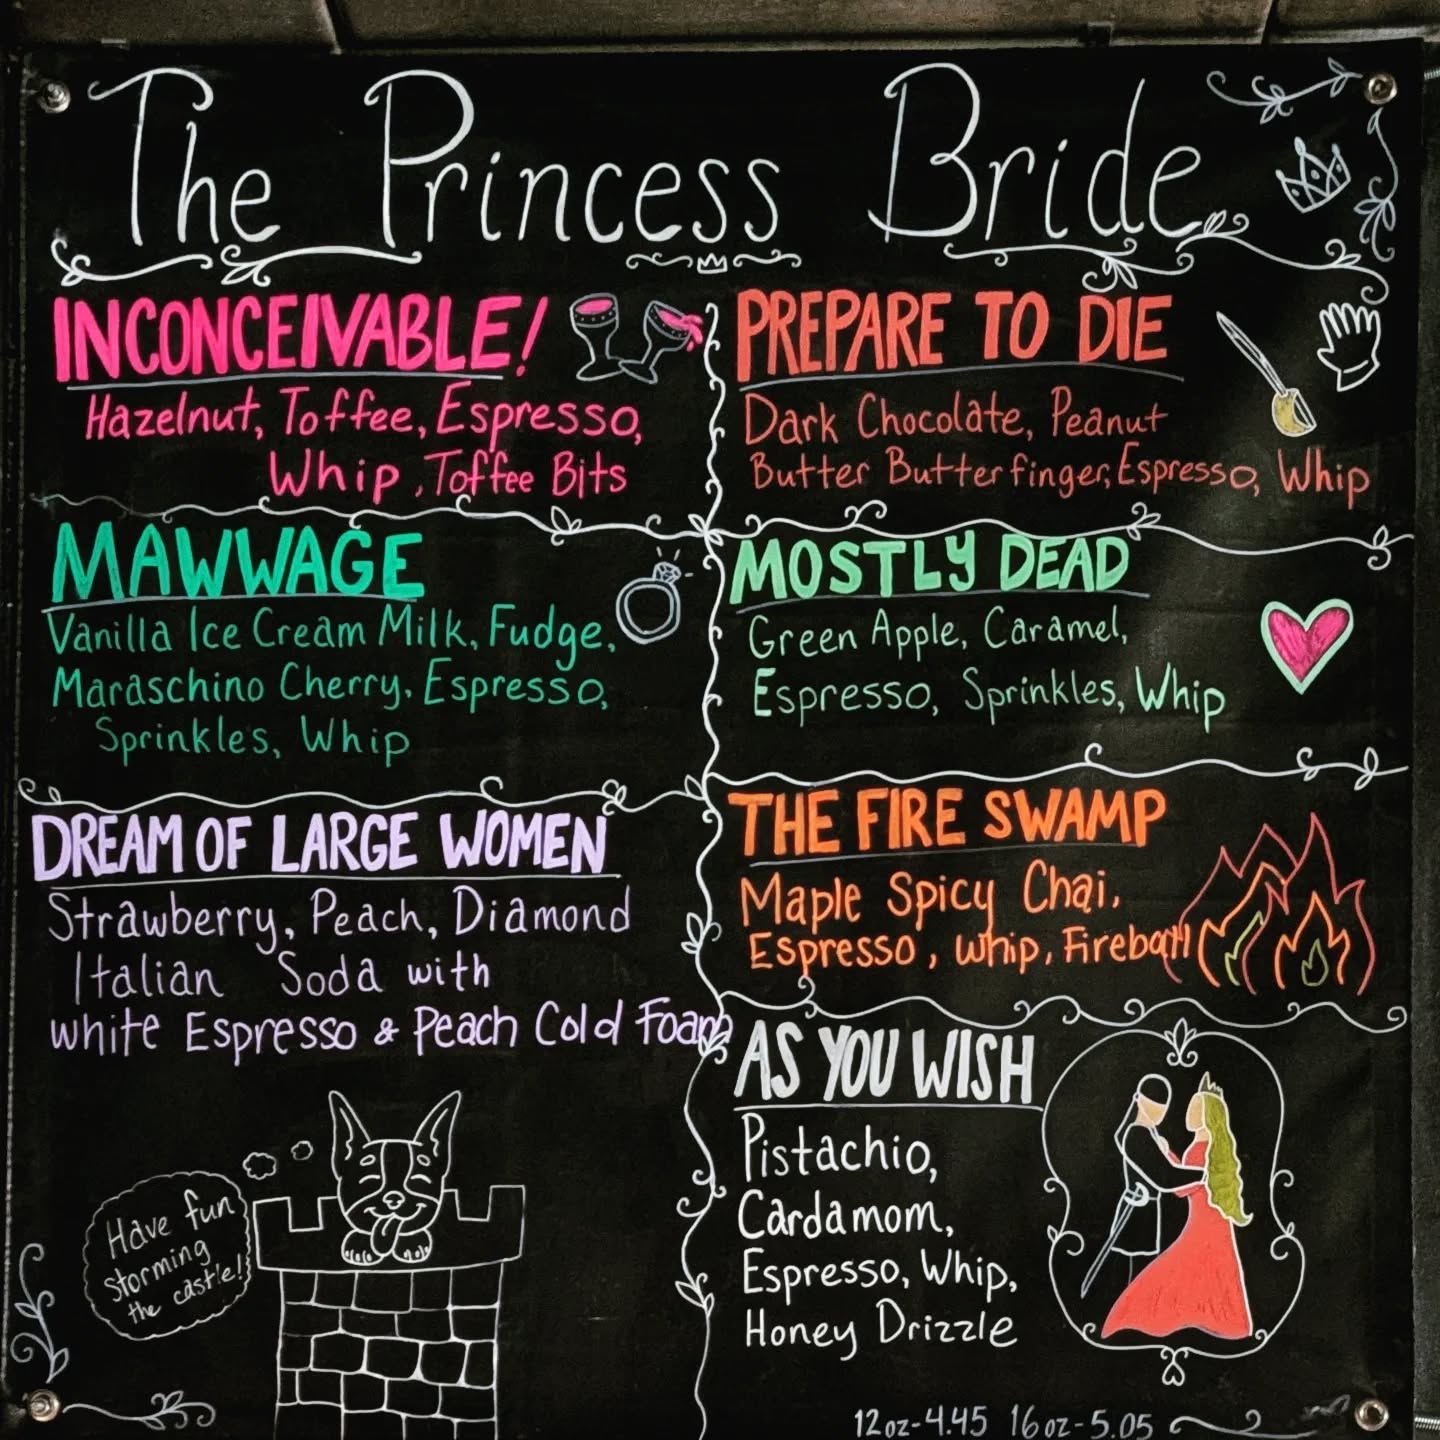 The Princess Bride
INCONCEIVABLE!
Hazelnut, Toffee, Espresso,
Whip, Toffee Bits
PREPARE TO DIE
Dark Chocolate, Peanut
Butter Butterfinger, Espresso, Whip
MAWWAGE
Vanilla Ice Cream Milk, Fudge,
Maraschino Cherry, Espresso,
Sprinkles, Whip
MOSTLY DEAD
Green Apple, Caramel,
Espresso, Sprinkles, Whip
DREAM OF LARGE WOMEN
Strawberry, Peach, Diamond
Italian Soda with
white Espresso & Peach Cold Foam
THE FIRE SWAMP
Maple Spicy Chai,
Espresso, Whip, Fireball
AS YOU WISH
Pistachio,
Cardamom,
Espresso, Whip,
Honey Drizzle
Have fun
storming
the castle!
12oz-4.45 16oz-5.05